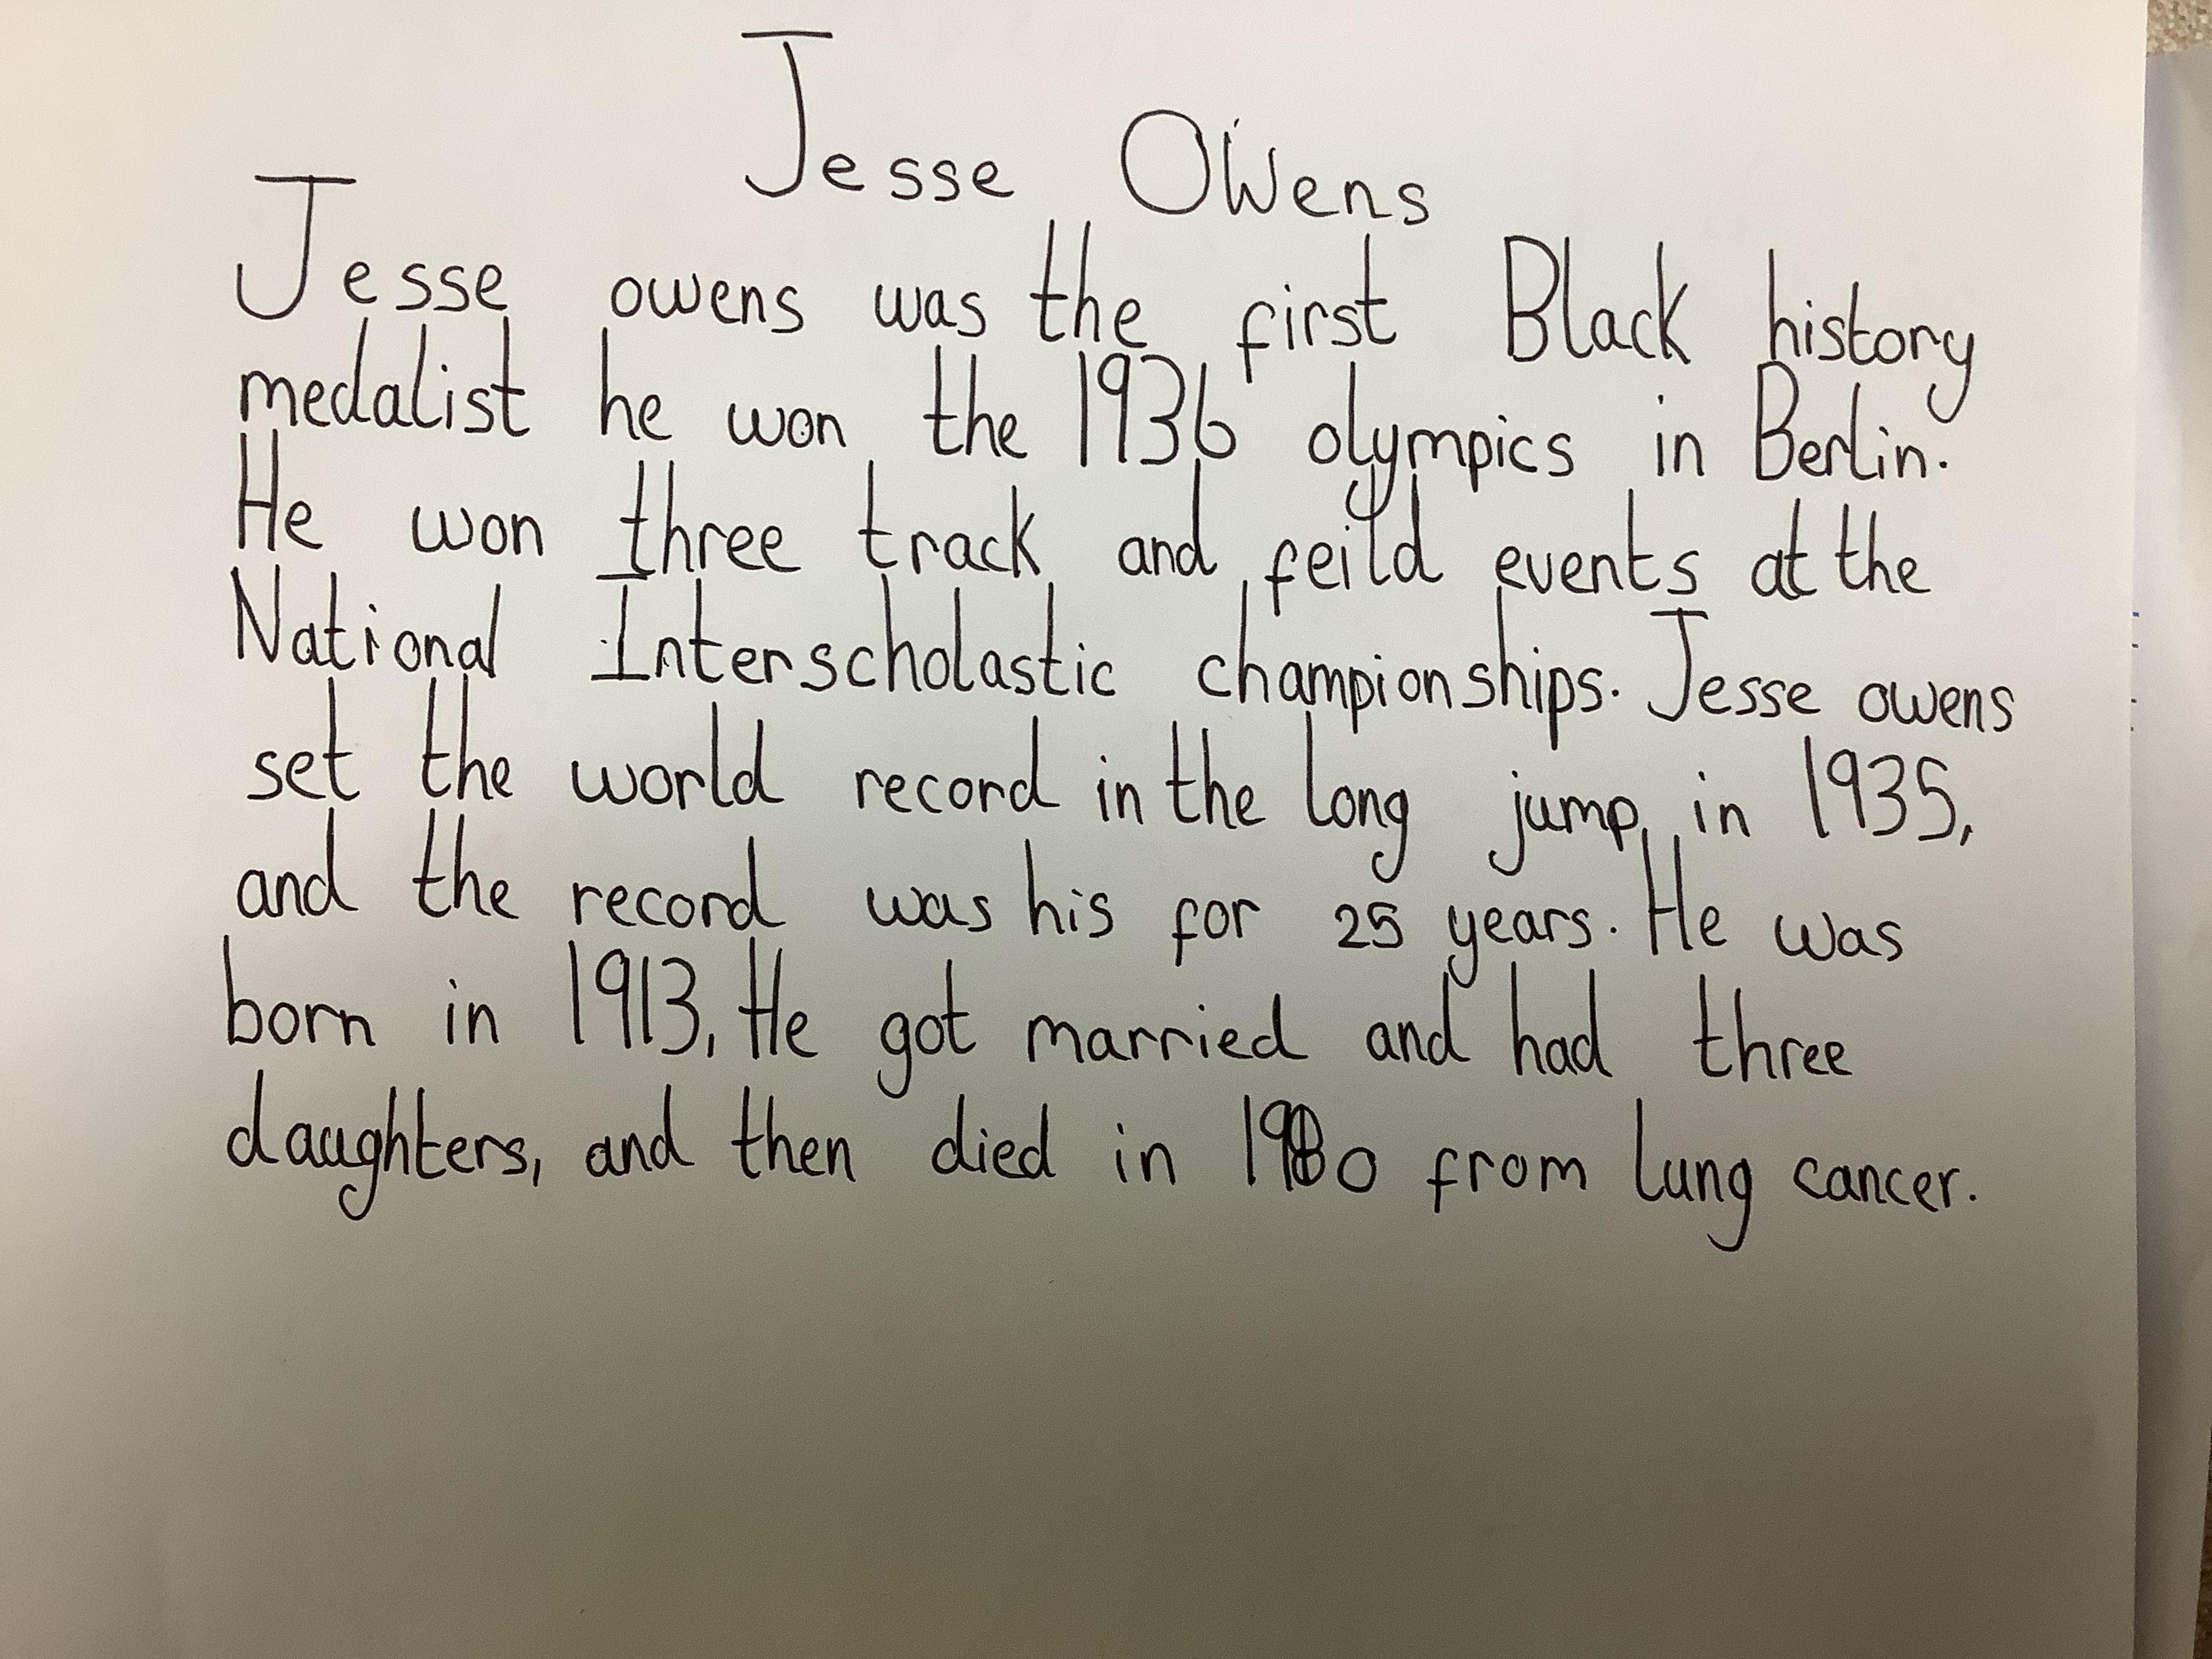 Jesse Owens
Jesse owens was the first Black history
medalist he won the 1936 olympics in Berlin.
He won three track and feild events at the
National Interscholastic championships. Jesse owens
set the world record in the long jump in 1935,
and the record was his for 25 years. He was
born in 1913, He got married and had three
daughters, and then died in 1980 from lung cancer.